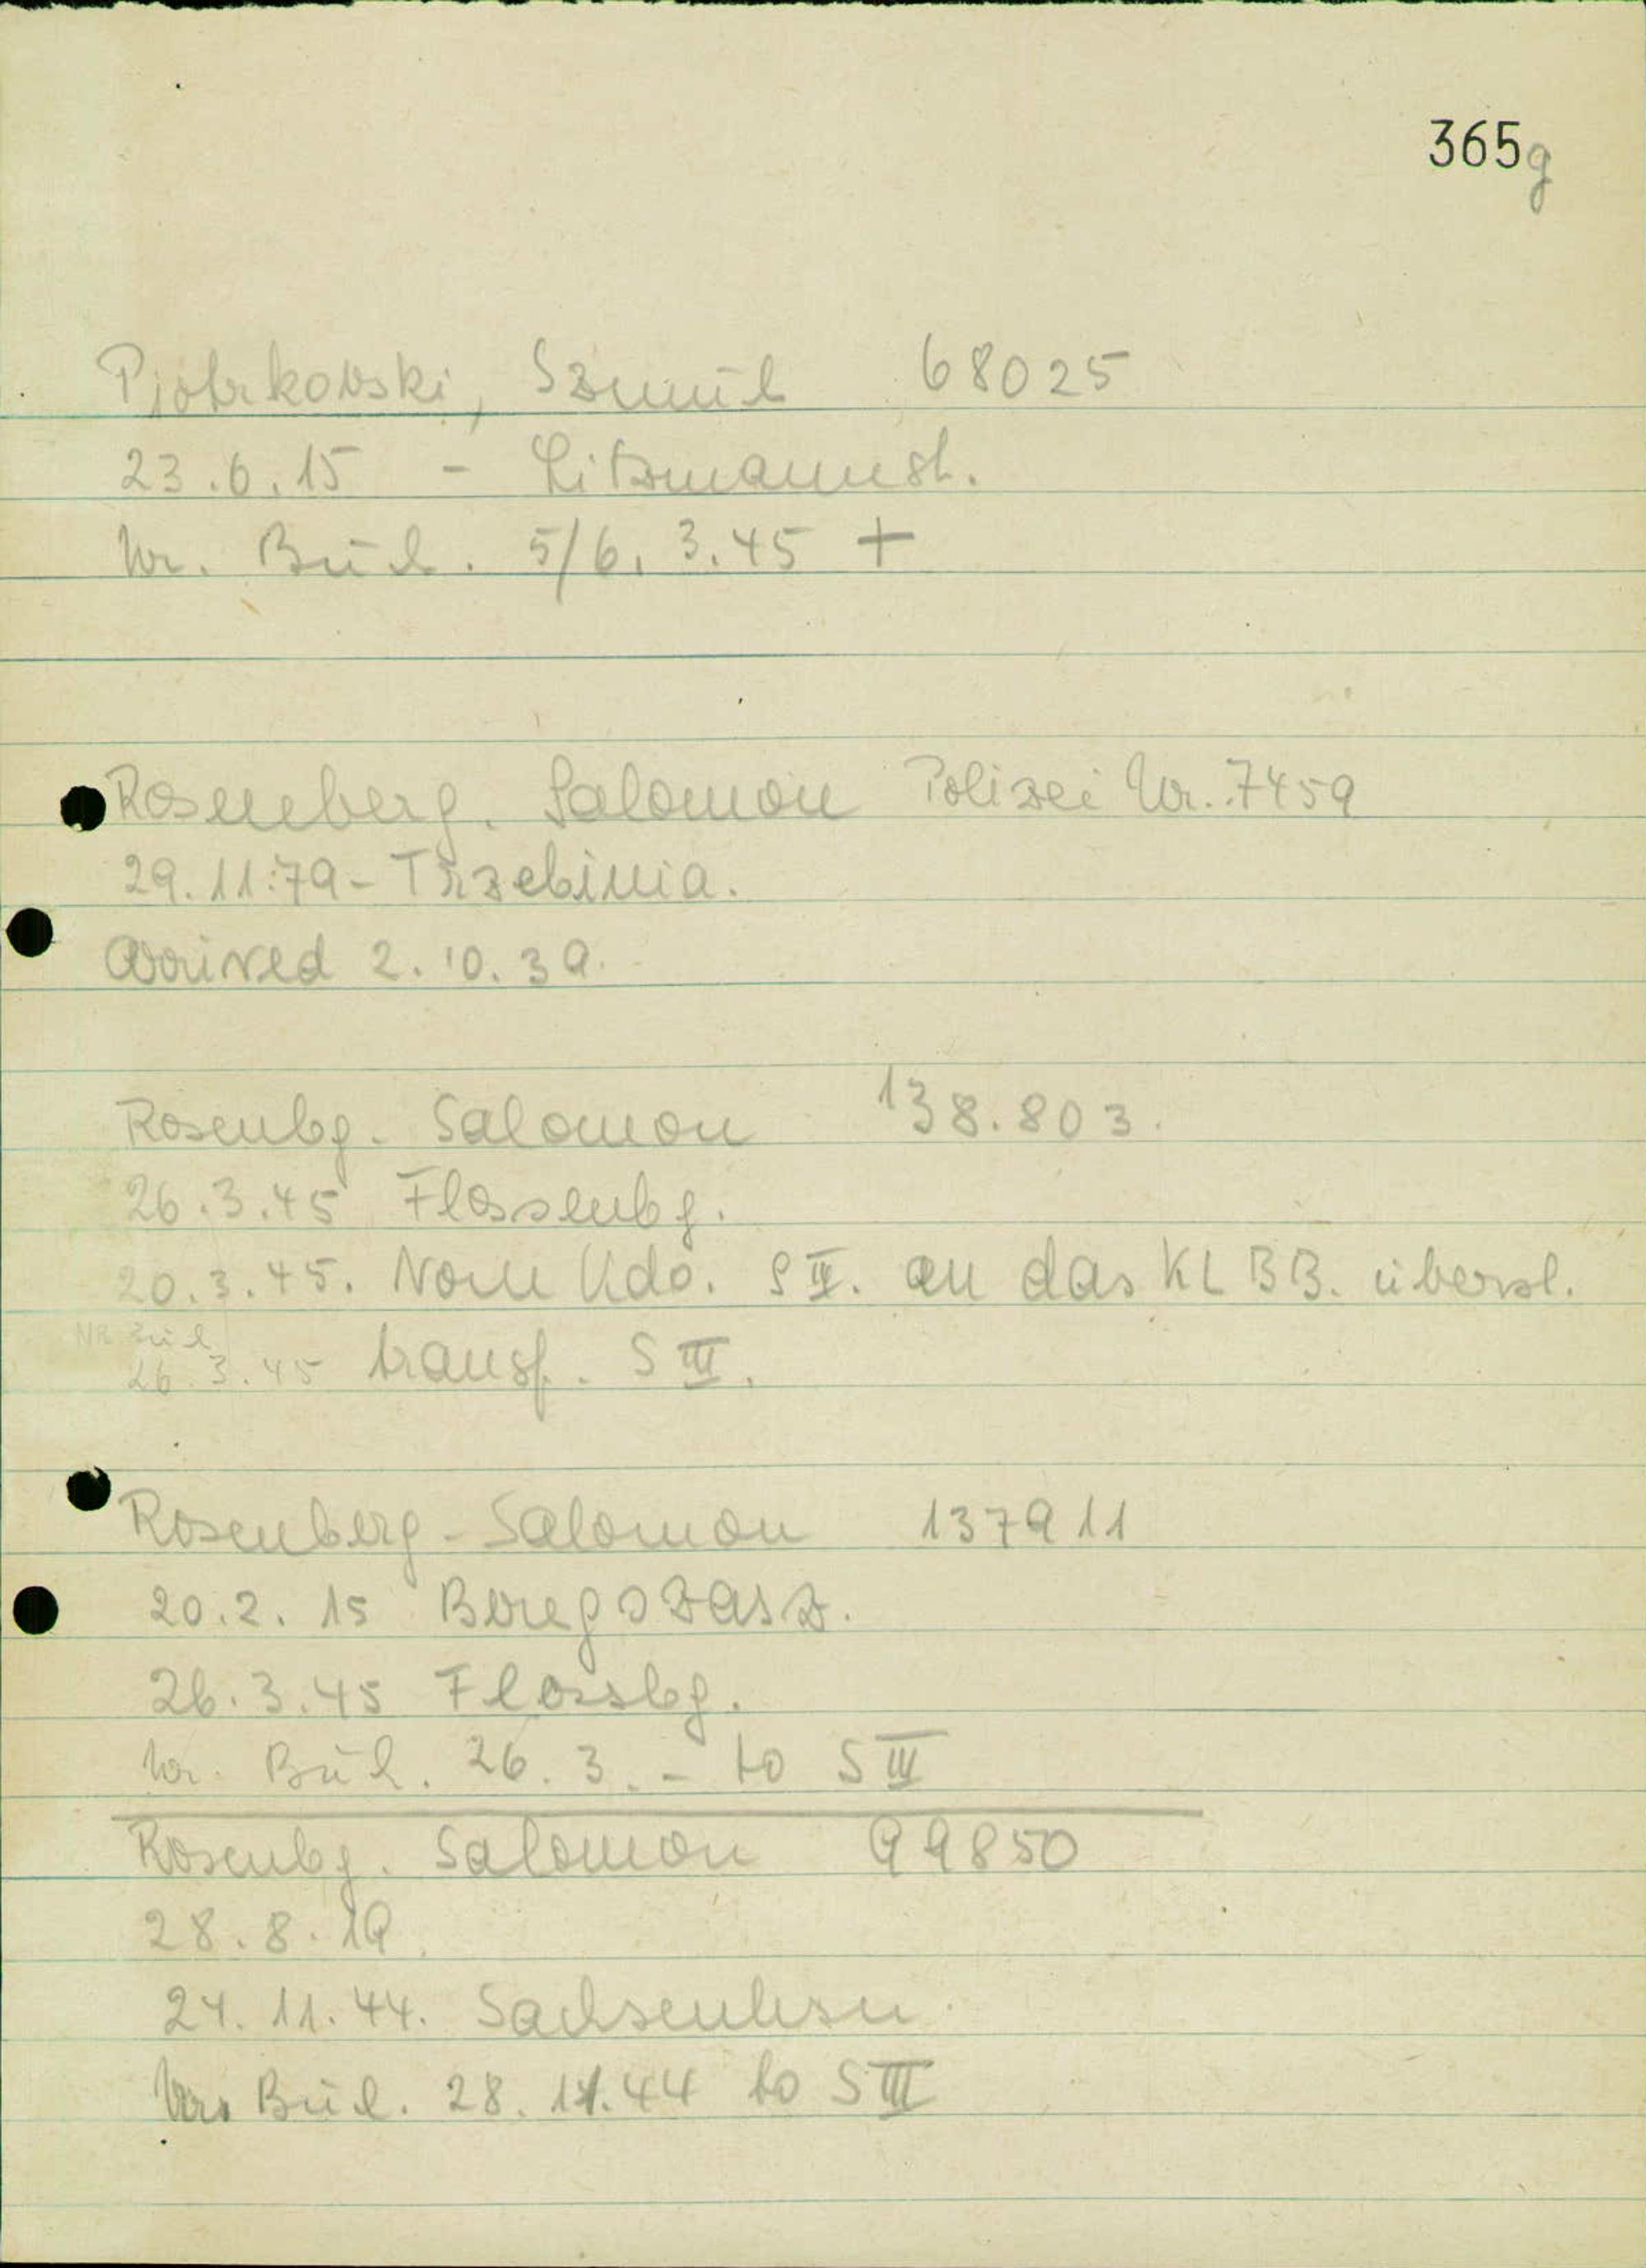 365g
Pjotrkowski, Szmul 68025
23.6.15 - Litzmannst.
Nr. Büch. 5/6. 3.45 +
Rosenberg. Salomon Polizei Nr. 7459
29.11.79 - Trzebinia.
Arrived 2.10.39.
Rosenbg. Salomon 138.803.
26.3.45 Flossenbg.
20.3.45. Vom Kdo. S III. an das KL BB. überst.
NR Büch
26.3.45 transf. S III.
Rosenberg - Salomon 137911
20.2.15 Beregszasz.
26.3.45 Flossbg.
Nr. Büch. 26.3. - to S III
Rosenbg. Salomon 99850
28.8.19.
24.11.44. Sachsenhsn.
Nr. Büch. 28.11.44 to S III